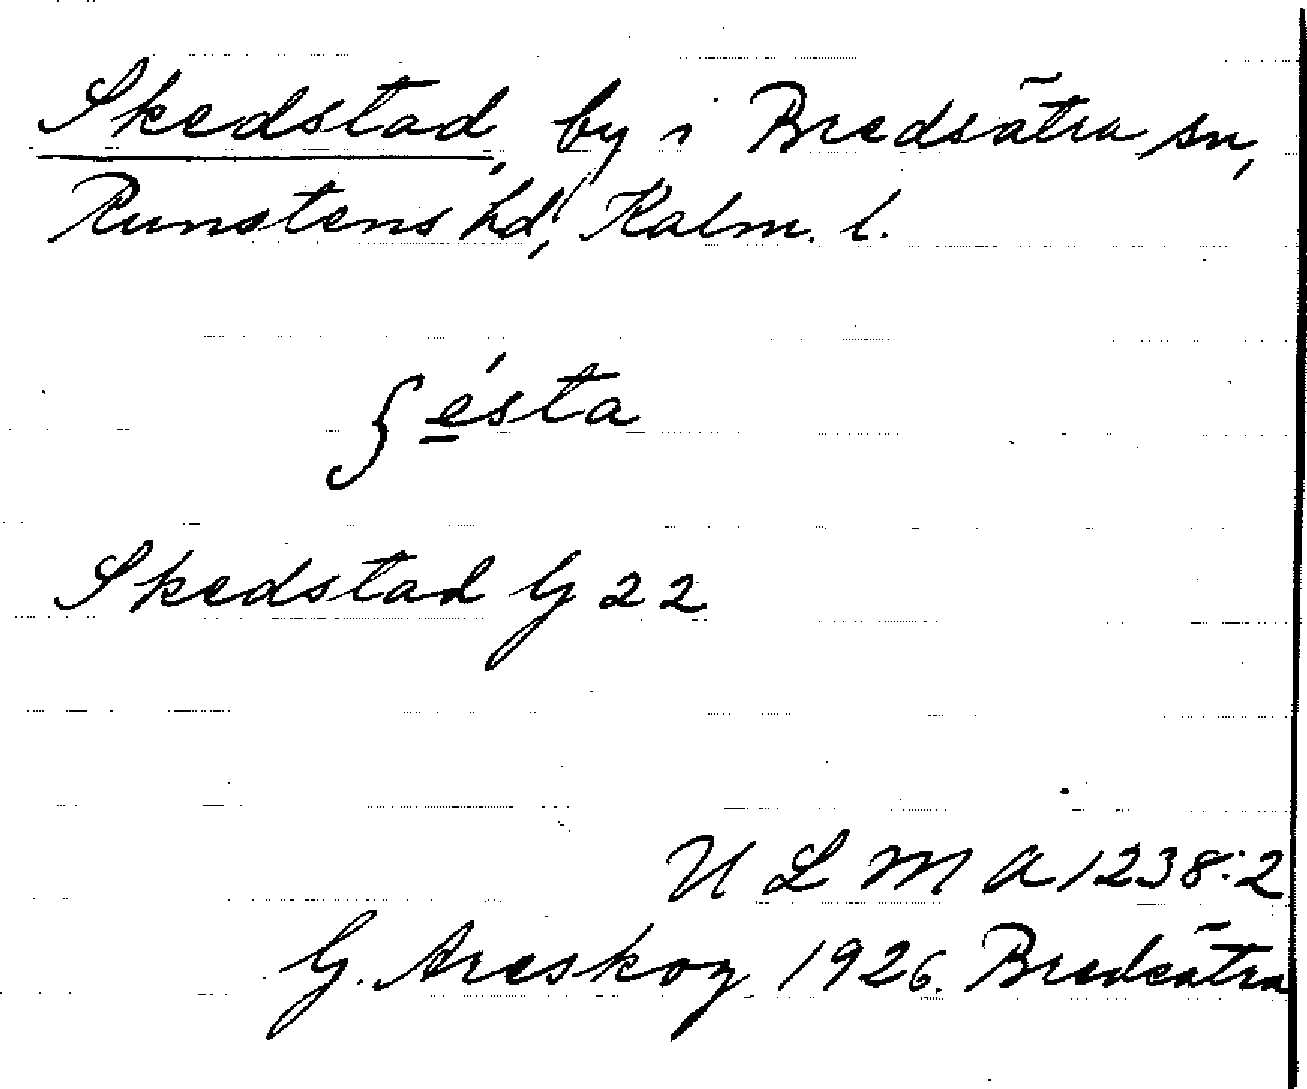 Skedstad, by i Bredsätra sn,
Runstens hd, Kalm. l.
ʃe̲´sta
Skedstad G 22
U L M A 1238:2
G. Areskog 1926. Bredsätra